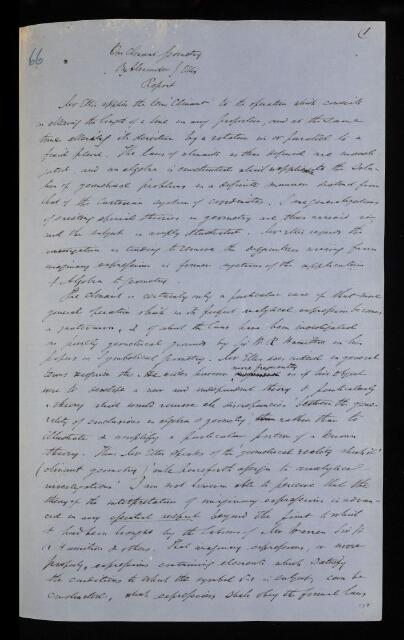 66
1
On Clinant Geometry
By Alexander J Ellis
Report
Mr Ellis applies the term "Clinant" to the operation which consists
in altering the length of a line in any proportion, and at the same
time altering its direction by a rotation in or parallel to a
fixed plane. The laws of clinants as thus defined are investi-
gated and an algebra is constituted which applies to the solu-
tion of geometrical problems in a definite manner distinct from
that of the Cartesian system of coordinates. Some generalizations
of existing special theories in geometry are thus arrived at,
and the subject is amply illustrated. Mr Ellis regards the
investigation as tending to remove the difficulties arising from
imaginary expressions in former systems of the application
of Algebra to geometry.
The clinant is certainly only a particular case of that more
general operation which in its perfect analytical expression becomes
a quaternion, & of which the laws have been investigated
on purely geometrical grounds by Sir W. R. Hamilton in his
papers on Symbolical Geometry. Mr Ellis does indeed in general
terms recognise this. He writes however more frequently as if his object
were to develope a new and independent theory & particularly
a theory which would remove all discrepancies between the gene-
rality of conclusions in algebra & geometry rather than to
illustrate & exemplify a particular portion of a known
theory. Thus Mr Ellis speaks of the geometrical reality which it
(clinant geometry) "will henceforth assign to analytical
investigations" I am not however able to perceive that the
theory of the interpretation of imaginary expressions is advan-
ced in any essential respect beyond the point to which
it had been brought by the labours of Mr Warren Sir W.
R. Hamilton & others. That imaginary expressions, or more
properly, expressions containing elements which satisfy
the conditions to which the symbol √-1 is subject, can be
constructed, which expressions shall obey the formal laws